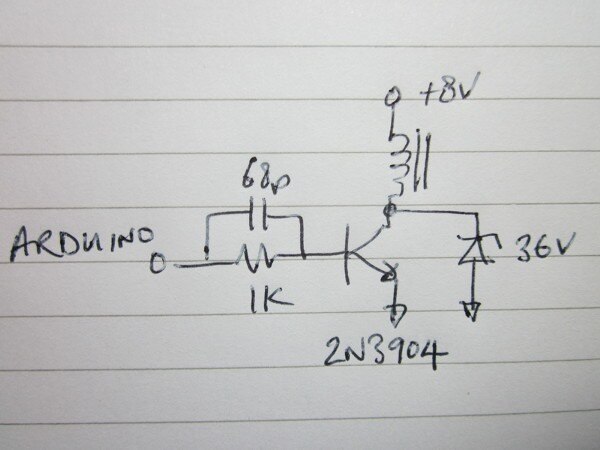 +8V
68p
ARDUINO
36V
1K
2N3904